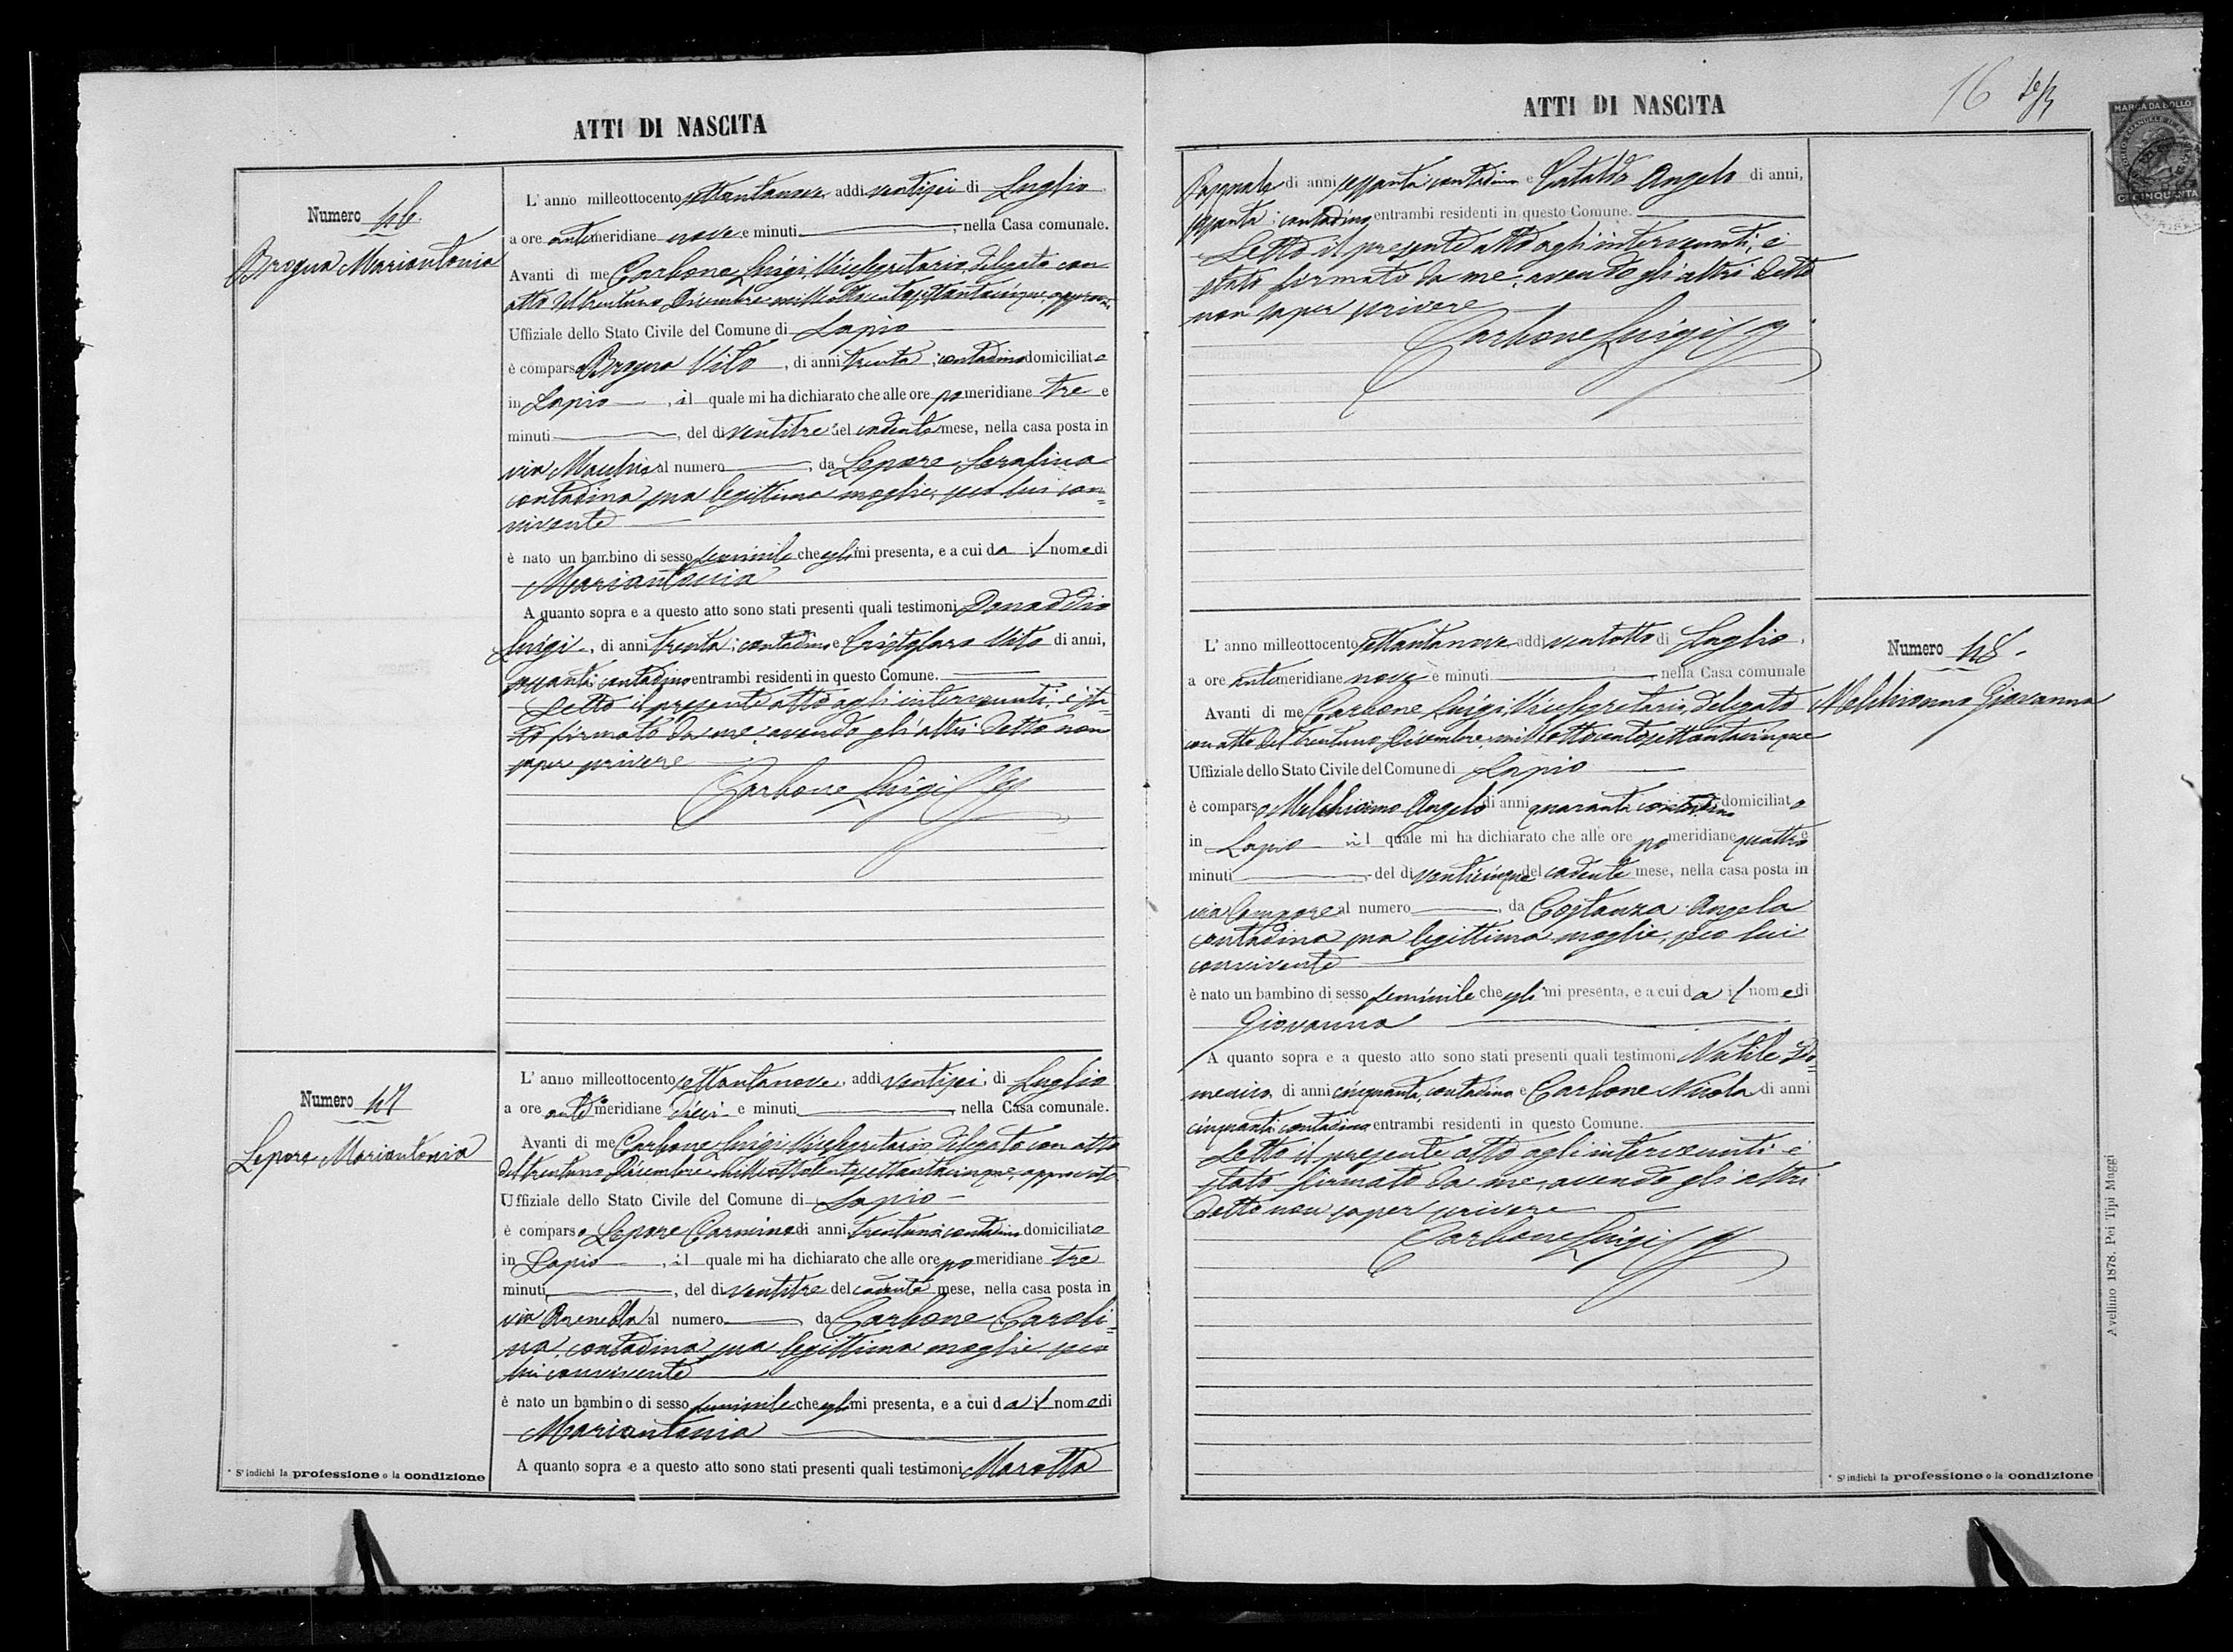 ATTI DI NASCITA
Numero 46.
Brogna Mariantonia
L' anno milleottocento settantanove addi ventisei di Luglio
a ore antimeridiane nove e minuti, nella Casa comunale.
Avanti di me Carbone Luigi, Vicesegretario, delegato con
atto del trentuno Dicembre mille ottocentosettantacinque,
Uffiziale dello Stato Civile del Comune di Lapio
è comparso Brogna Vito, di anni trenta, contadino domiciliato
in Lapio, il quale mi ha dichiarato che alle ore pomeridiane tre e
minuti, del di ventitre del cadente mese, nella casa posta in
via Macchia al numero, da Lepore Serafina
contadina sua legittima moglie, seco lui con=
vivente
è nato un bambino di sesso feminile che egli mi presenta, e a cui da il nome di
Mariantonia
A quanto sopra e a questo atto sono stati presenti quali testimoni Donaddio
Luigi, di anni trenta, contadino e Cristofaro Vito di anni,
contadino entrambi residenti in questo Comune.
Letto il presente atto agli intervenuti, è sta=
to firmato da me, avendo gli altri detto non
saper scrivere
Carbone Luigi
Numero 47
Lepore Mariantonia
L' anno milleottocento settantanove, addi ventisei, di Luglio
a ore antimeridiane dieci e minuti, nella Casa comunale.
Avanti di me Carbone Luigi Vicesegretario, delegato con atto
del trentuno Dicembre milleottocentosettantacinque, approvato
Uffiziale dello Stato Civile del Comune di Lapio
è comparso Lepore Carmine di anni trentuno contadino domiciliato
in Lapio, il quale mi ha dichiarato che alle ore pomeridiane tre
minuti, del di ventitre del cadente mese, nella casa posta in
via al numero da Carbone Caroli=
na, contadina sua legittima moglie seco
lui convivente
è nato un bambino di sesso feminile che egli mi presenta, e a cui da il nome di
Mariantonia
A quanto sopra e a questo atto sono stati presenti quali testimoni Marotta
* S'indichi la professione o la condizione
ATTI DI NASCITA
16
MARCA DA BOLLO
C. CINQUANTA
Pasquale di anni sessanta contadino e Cataldo Angelo di anni,
sessanta, contadino entrambi residenti in questo Comune.
Letto il presente atto agli intervenuti, è
stato firmato da me, avendo gli altri detto
non saper scrivere
Carbone Luigi
Numero 48.
Melchionno Giovanna
L' anno milleottocento settantanove addi ventotto di Luglio,
a ore antimeridiane nove e minuti nella Casa comunale
Avanti di me Carbone Luigi, Vicesegretario, delegato
con atto del trentuno Dicembre, milleottocentosettantacinque
Uffiziale dello Stato Civile del Comune di Lapio
è comparso Melchionno Angelo di anni quaranta contadino domiciliato
in Lapio il quale mi ha dichiarato che alle ore pomeridiane quattro e
minuti, del di venticinque del cadente mese, nella casa posta in
via al numero, da Costanza Angela
contadina sua legittima moglie, seco lui
convivente
è nato un bambino di sesso feminile che egli mi presenta, e a cui da il nome di
Giovanna
A quanto sopra e a questo atto sono stati presenti quali testimoni Do=
menico di anni cinquanta, contadino e Carbone Nicola di anni
cinquanta contadino entrambi residenti in questo Comune.
Letto il presente atto agli intervenuti è
stato firmato da me, avendo gli altri
detto non saper scrivere
Carbone Luigi
* S'indichi la professione o la condizione
Avellino 1878. Pei Tipi Maggi